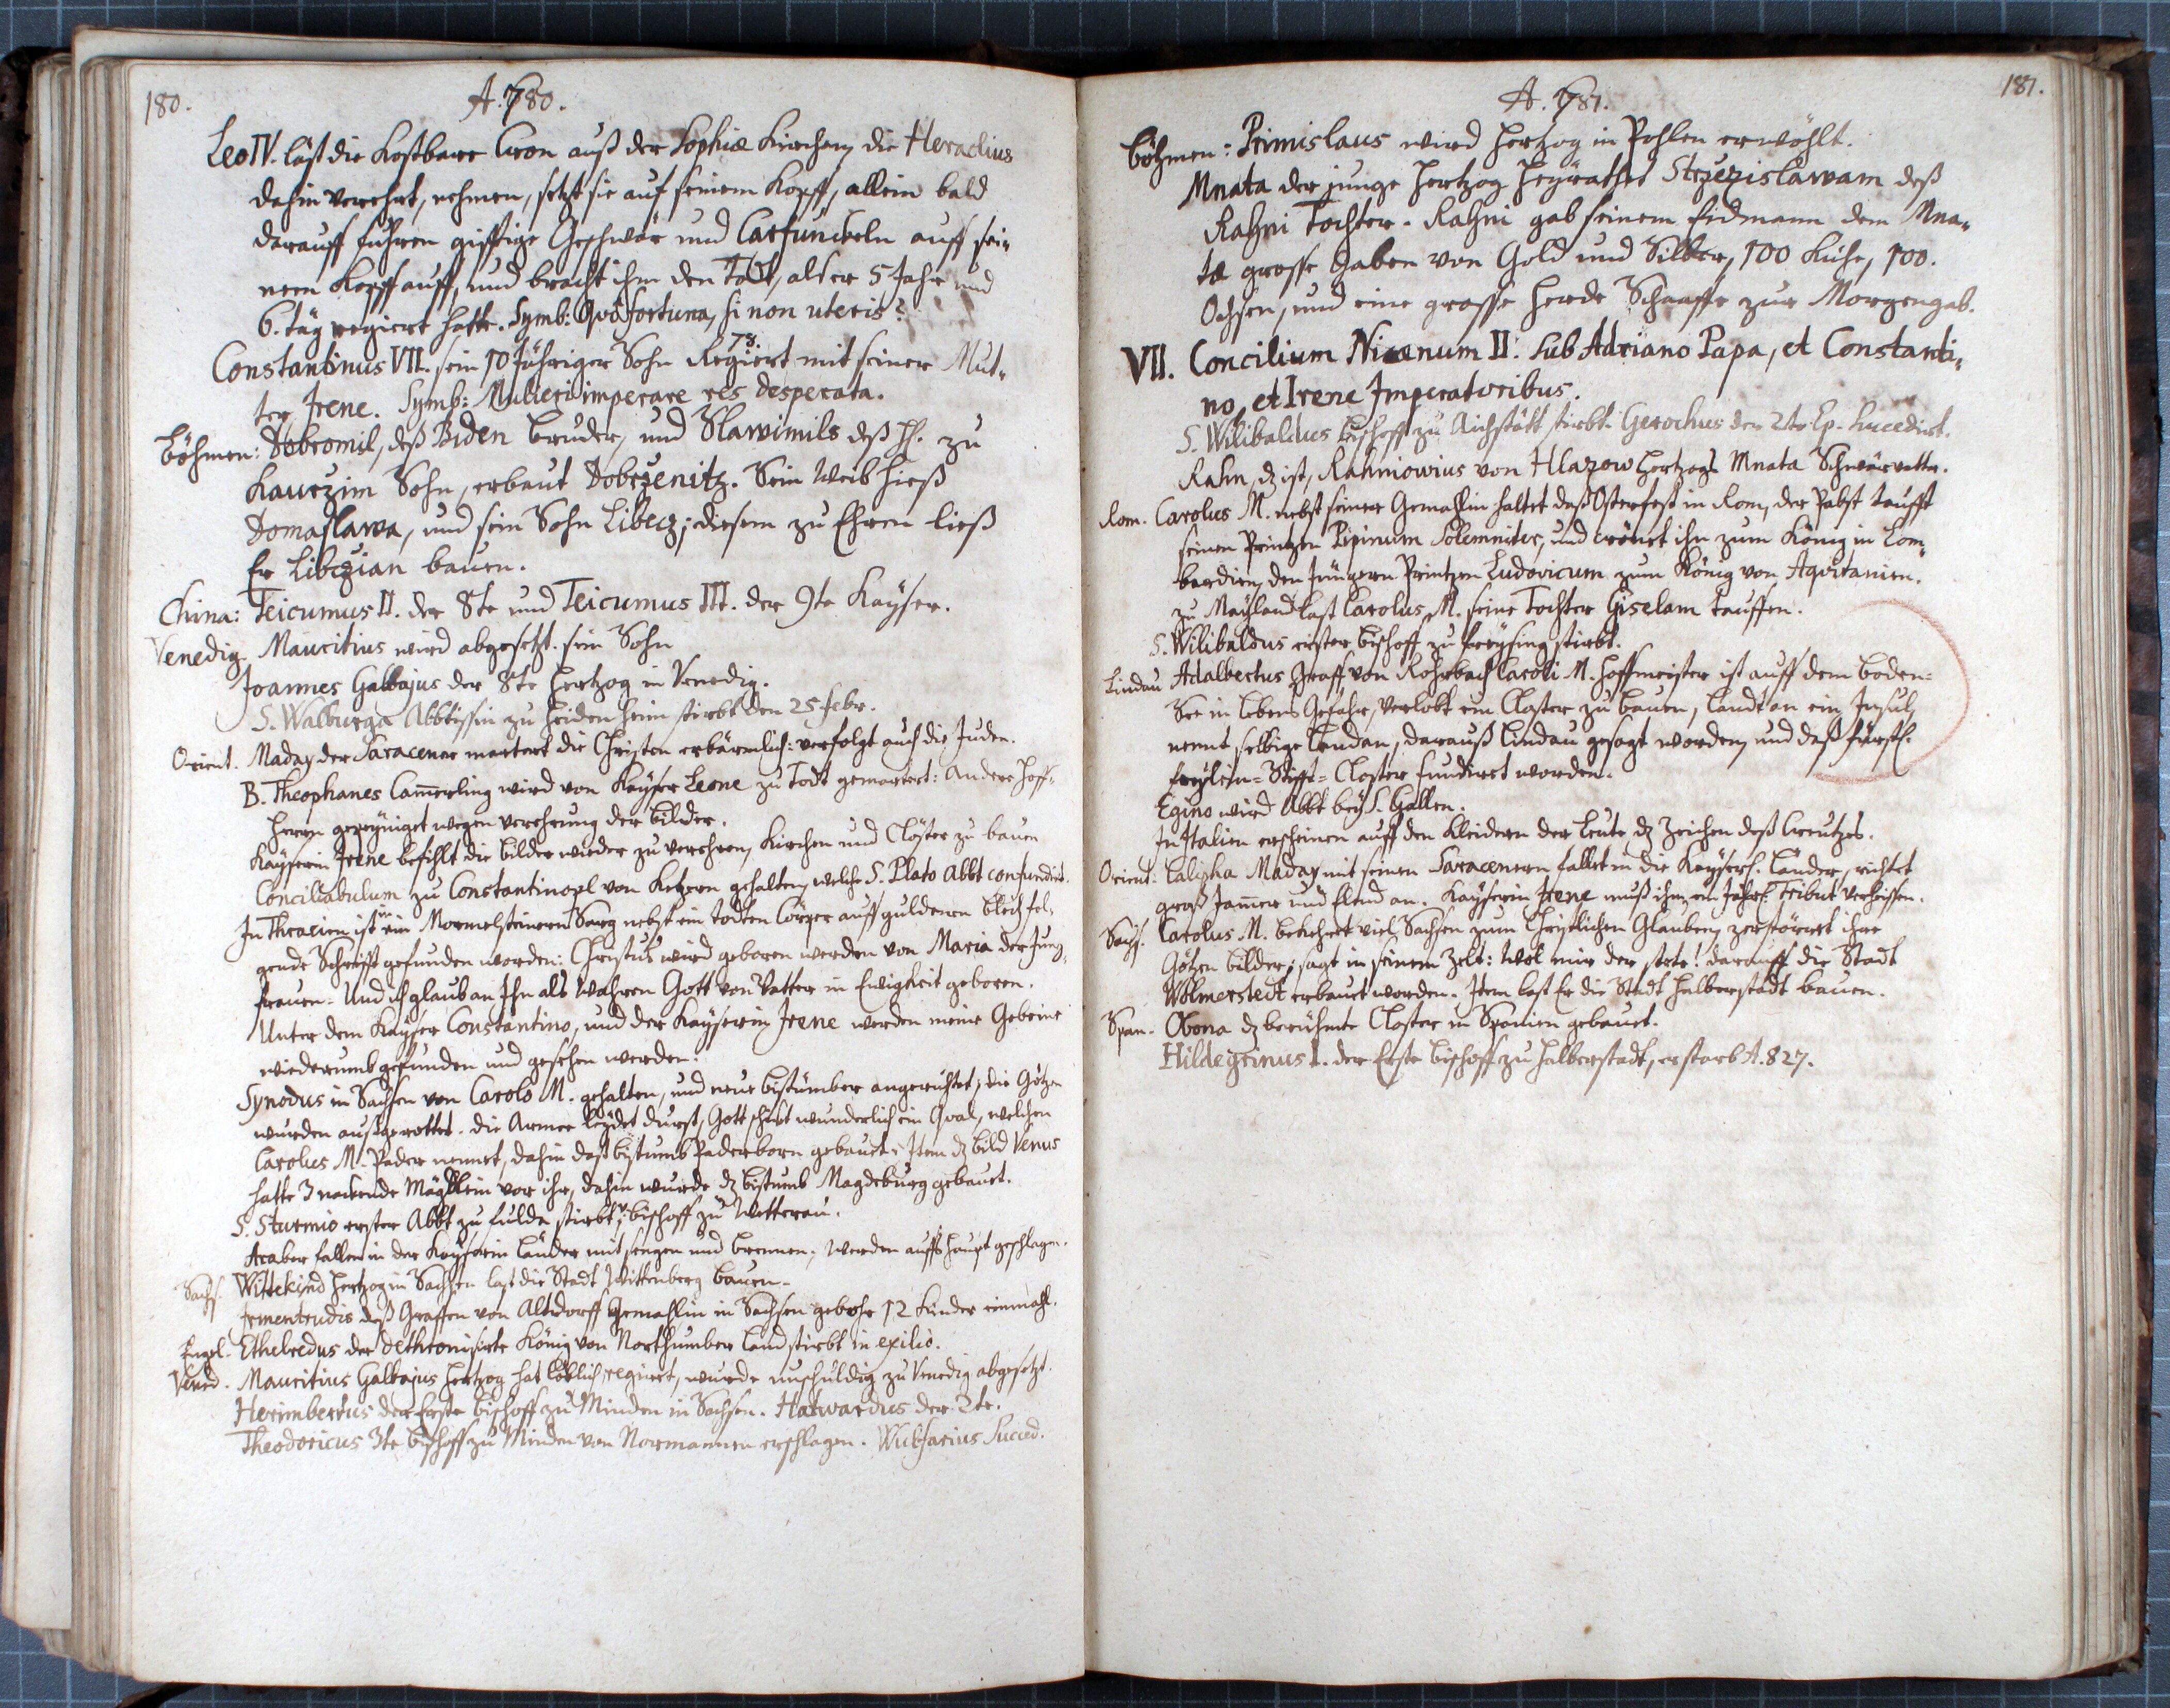 180.
A. 780.
Leo IV. läst die Kostbare Cron auß der Sophiæ Kirchen, die Heraclius
dahin verehrt, nehmen, setzt sie auf seinem Kopff, allein bald
darauff fuhren gifftige Geschwär und Carfunckeln auff sei-
nem Kopff auff, und bracht ihm den Todt, als er 5 Jahr und
6. täg regiert hatte. Symb: Quo fortuna, si non uteris?
18.
Constantinus VII. sein 10 Jähriger Sohn Regiert mit seiner Mut-
ter Irene. Symb: Mulieri imperare res desperata.
Böhmen: Dobromil, deß Biden bruder, und Slawimils deß H. zu
Kaurzim Sohn, erbaut Dobrzenitz. Sein Weib hieß
Domaslawa, und sein Sohn Libecz; diesem zu Ehren ließ
Er Libczian bauen.
China: Teicumus II. der 8te und Teicumus III. der 9te Kayser.
Venedig. Mauritius wird abgesetzt. sein Sohn
Joannes Galbajus der 8te Hertzog in Venedig.
S. Walburga Abbtissin zu Heidenheim stirbt den 25 febr.
Orient. Maday der Saracener martert die Christen erbärmlich: verfolgt auch die Juden.
B. Theophanes Camerling wird von Kayser Leone zu Todt gemartert: Andere Hoff-
herrn gepeyniget wegen verehrung der bilder.
Kayserin Irene befihlt die bilder wieder zu verehren, Kirchen und Clöster zu bauen
Conciliabulum zu Constantinopl von Ketzern gehalten, welche S. Plato Abbt confundirt.
In Thracien ist in ein Marmelsteinern Sarg nebst ein todten Cörper auff guldenen blech fol-
gende Schrifft gefunden worden: Christus wird geboren werden von Maria der Jung-
frauen. Und ich glaub an Ihn als wahren Gott von Vatter in Ewigkeit geboren.
Unter dem Kayser Constantino, und der Kayserin Irene werden meine Gebeine
wiederumb gefunden und gesehen werden.
Synodus in Sachsen von Carolo M. gehalten, und neue bistumber angerichtet; die Götzen
wurden außgerottet. die Armee leydet durst, Gott schickt wunderlich ein Qual, welchen
Carolus M. Pader nennet, dahin daß bistumb Paderborn gebauet. Item dz bild Venus
hatte 3 nackende Mägdlein vor ihr, dahin wurde dz bistumb Magdeburg gebauet.
S. Sturmio erster Abbt zu Fulda stirbt, bischoff zu Wetterau.
Araber fallen in der Kayserin länder mit sengen und brennen; werden auffs haupt geschlagen.
Sachs. Wittekind Hertzog in Sachsen last die Stadt Wittenberg bauen.
Irmentrudis deß Graffen von Altdorff Gemahlin in Sachsen gebohr 12 Kinder einmahl.
Engel. Ethelredus der dethronisirte König von Northumberland stirbt in exilio.
Vened. Mauritius Galbajus Hertzog hat löblich regiert, wurde unschuldig zu Venedig abgesetzt.
Herimbertus der Erste bischoff zu Minden in Sachsen. Hatwardus der 2te.
Theodoricus 3te bischoff zu Minden von Normannen erschlagen. Succed.
181.
A. 781.
Böhmen: Primislaus wird Hertzog in Pohlen erwöhlt.
Mnata der junge Hertzog heyrathet Strzezislawam deß
Rahni Tochter. Rahni gab seinem Eidmann dem Mna-
ta grosse Gaben von Gold und Silber, 100 Kühe, 100.
Ochsen, und eine grosse Herde Schaaffe zur Morgengab.
VII. Concilium Nicænum II. sub Adriano Papa, et Constanti-
no, et Irene Imperatoribus.
S. Wilibaldus bischoff zu Aichstätt stirbt. Gerochus der 2te Ep. succedirt.
Rahn, dz ist, Rahniowius von Hlazow Hertzogs Mnata Schwärvatter.
Rom. Carolus M. nebst seiner Gemahlin haltet daß Osterfest in Rom, der Pabst taufft
seinen Printzen Pipinum solemniter, und crönet ihn zum König in Lom-
bardien, den Jüngern Printzen Ludovicum zum König von Aquitanien.
zu Mayland last Carolus M. seine Tochter Giselam tauffen.
S. Wilibaldus erster bischoff zu Freysing stirbt.
Lindau Adalbertus Graff von Rohrbach Caroli M. Hoffmeister ist auff dem boden-
See in lebens Gefahr, verlobt ein Closter zu bauen, landt an ein Insul,
nennt selbige Landau, darauß Lindau gesagt worden, und daß fürstl.
freylein-Stifft-Closter fundirt worden.
Egino wird Abbt bey S. Gallen.
In Italien erscheinen auff den Kleidern der Leute dz Zeichen deß Creutzes.
Orient: Calipha Maday mit seinen Saracenern fallet in die Kayserl. länder, richtet
groß Jammer und Elend an. Kayserin Irene muß ihm ein Jährl. tribut verheissen.
Sachs. Carolus M. bekehret viel Sachsen zum Christlichen Glauben, zerstöret ihre
Götzen bilder; sagt in seinem Zelt: Wol mir der stete! darauff die Stadt
Wolmerstedt erbauet worden. Item last Er die Stadt Halberstadt bauen.
Span. Obona dz berühmte Closter in Spanien gebauet.
Hildegrinus I. der Erste bischoff zu Halberstadt, er starb A. 827.